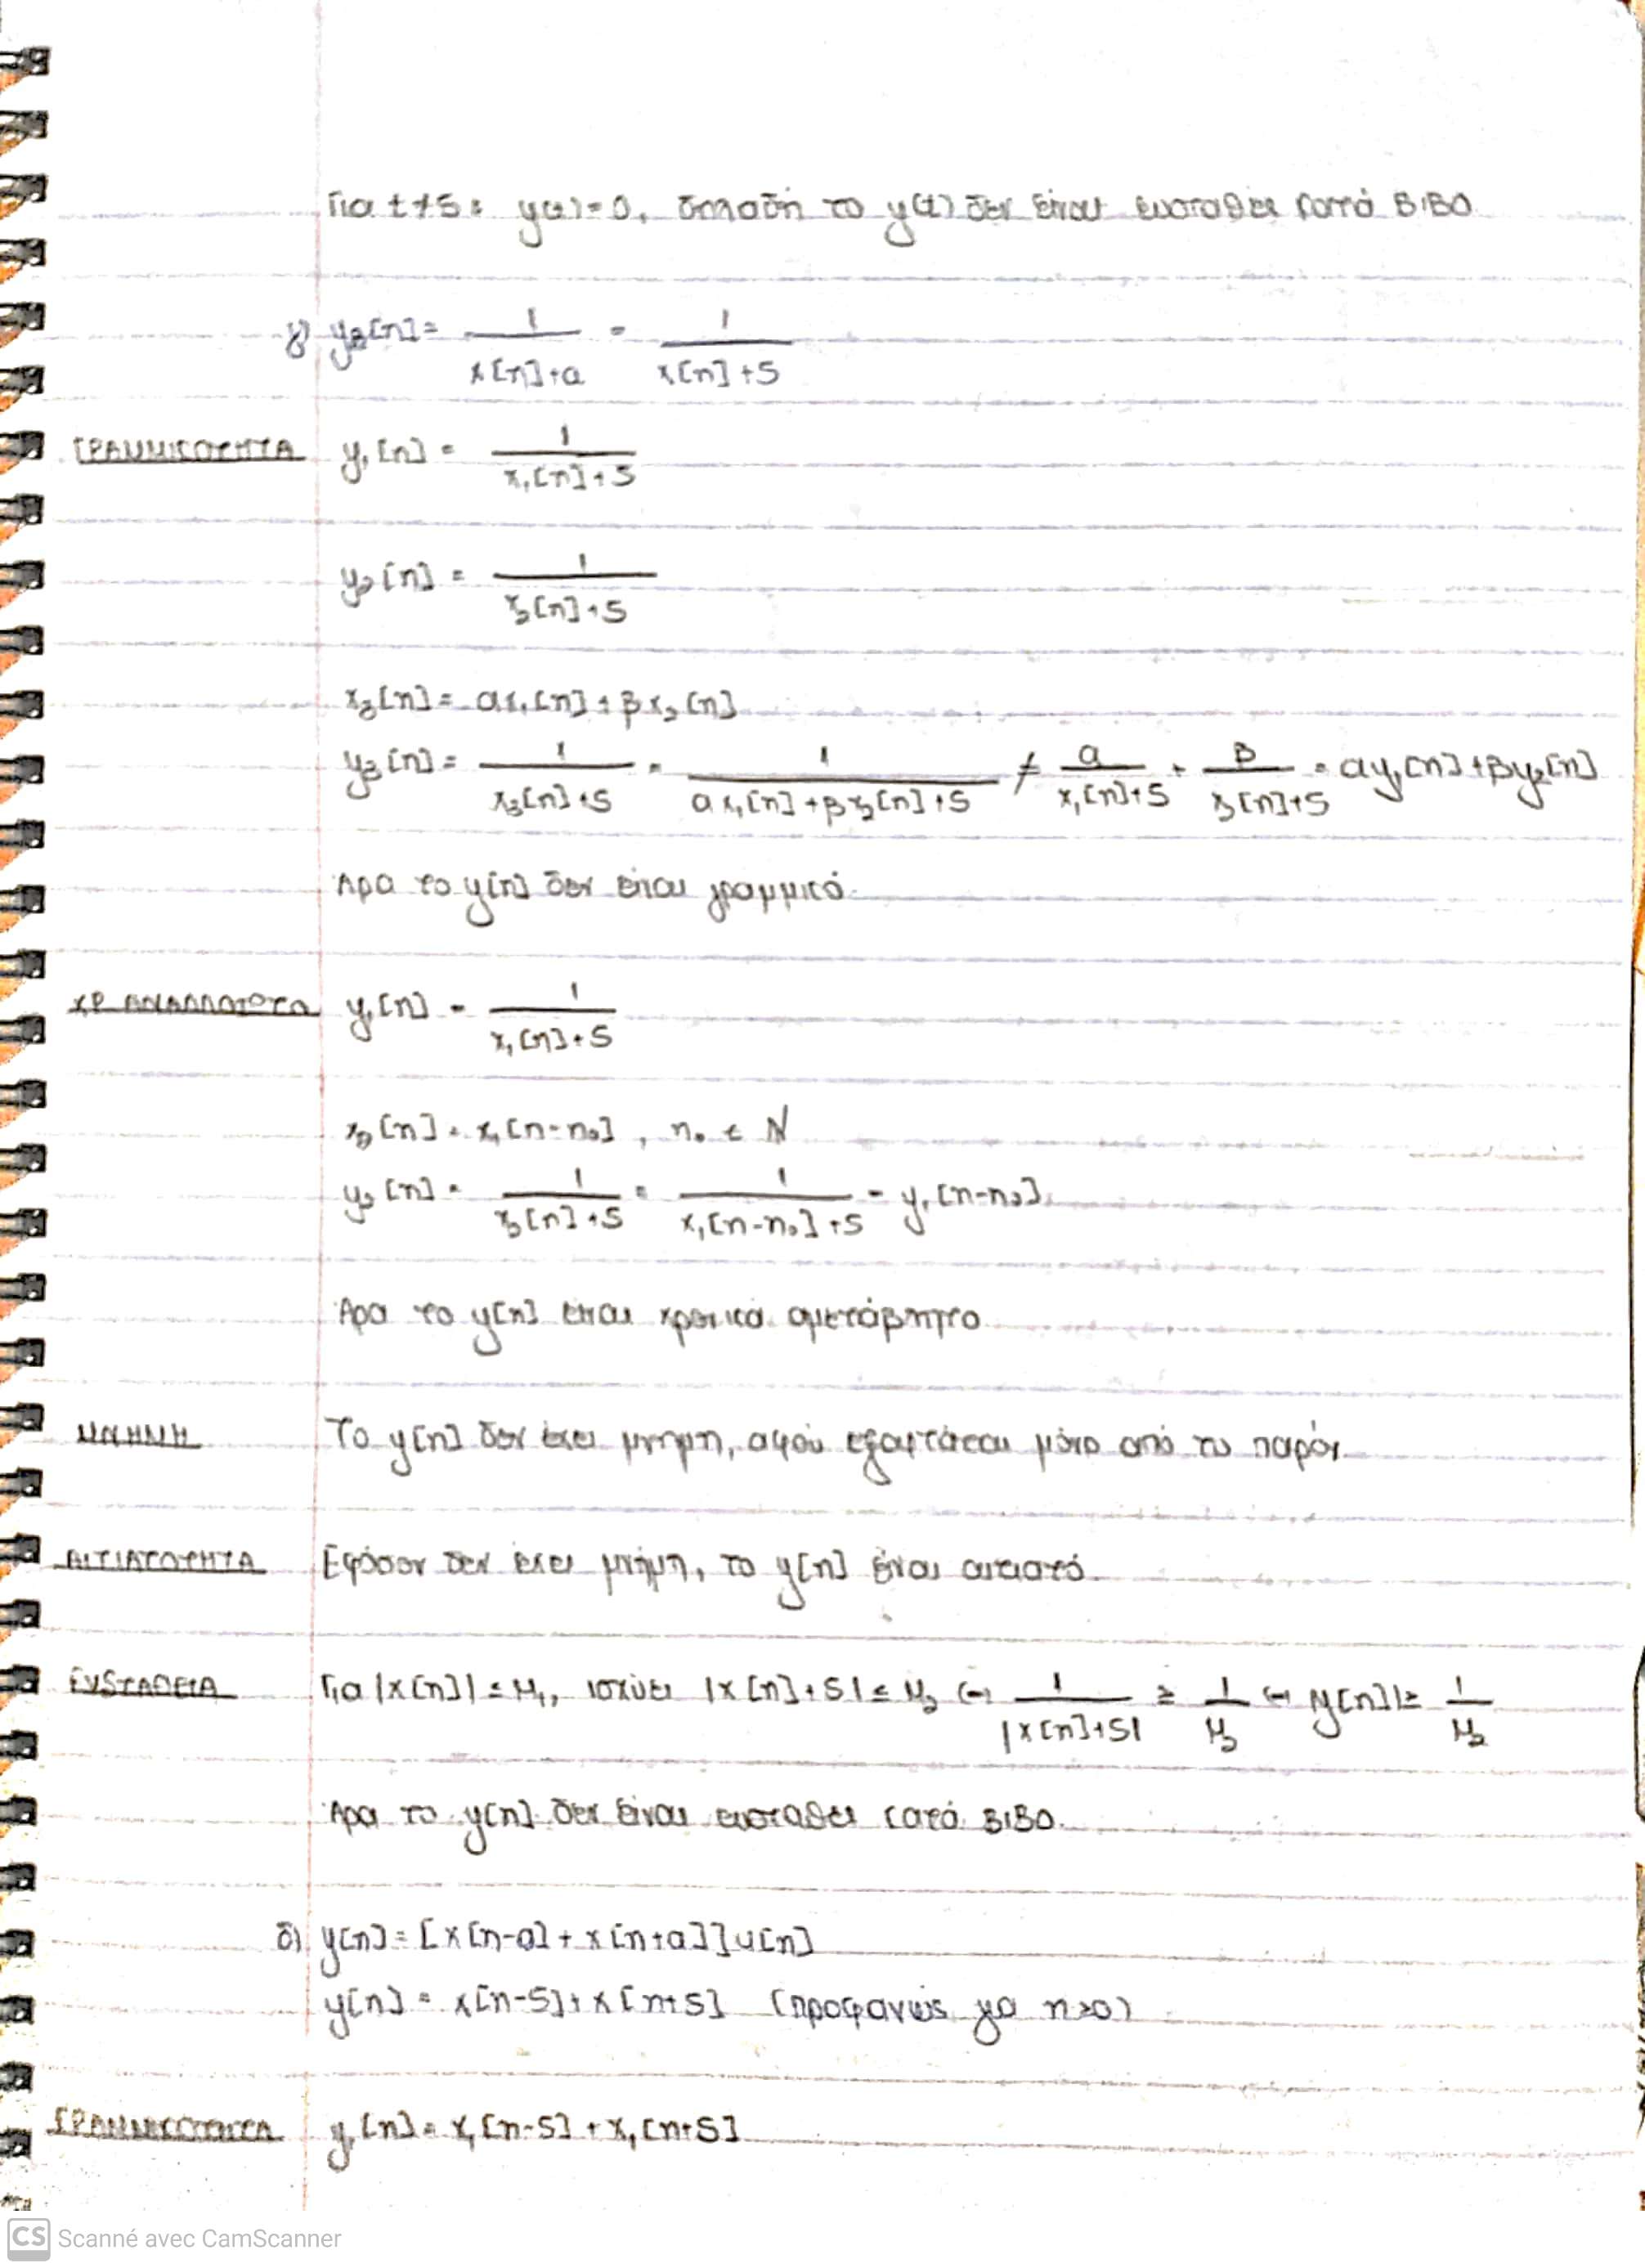 Για t≠5: y(t)=0, δηλαδή το y(t) δεν είναι ευσταθές κατά BIBO
γ) y[n] = 1/(x[n]+a) = 1/(x[n]+5)
ΓΡΑΜΜΙΚΟΤΗΤΑ y₁[n] = 1/(x₁[n]+5)
y₂[n] = 1/(x₂[n]+5)
x₃[n] = αx₁[n] + βx₂[n]
y₃[n] = 1/(x₃[n]+5) = 1/(αx₁[n]+βx₂[n]+5) ≠ α/(x₁[n]+5) + β/(x₂[n]+5) = αy₁[n]+βy₂[n]
Άρα το y[n] δεν είναι γραμμικό.
ΧΡ. y₁[n] = 1/(x₁[n]+5)
x₂[n] = x₁[n-n₀], n₀ ∈ N
y₂[n] = 1/(x₂[n]+5) = 1/(x₁[n-n₀]+5) = y₁[n-n₀].
Άρα το y[n] είναι χρονικά αμετάβλητο
ΜΝΗΜΗ Το y[n] δεν έχει μνήμη, αφού εξαρτάται μόνο από το παρόν.
ΑΙΤΙΑΤΟΤΗΤΑ Εφόσον δεν έχει μνήμη, το y[n] είναι αιτιατό.
ΕΥΣΤΑΘΕΙΑ Για |x[n]| ≤ M₁, ισχύει |x[n]+5| ≤ M₂ ⇔ 1/|x[n]+5| ≥ 1/M₂ ⇔ |y[n]| ≥ 1/M₂
Άρα το y[n] δεν είναι ευσταθές κατά BIBO.
δ) y[n] = [x[n-a] + x[n+a]]u[n]
y[n] = x[n-5] + x[n+5] (προφανώς για n≥0)
ΓΡΑΜΜΙΚΟΤΗΤΑ y₁[n] = x₁[n-5] + x₁[n+5]
CS Scanné avec CamScanner